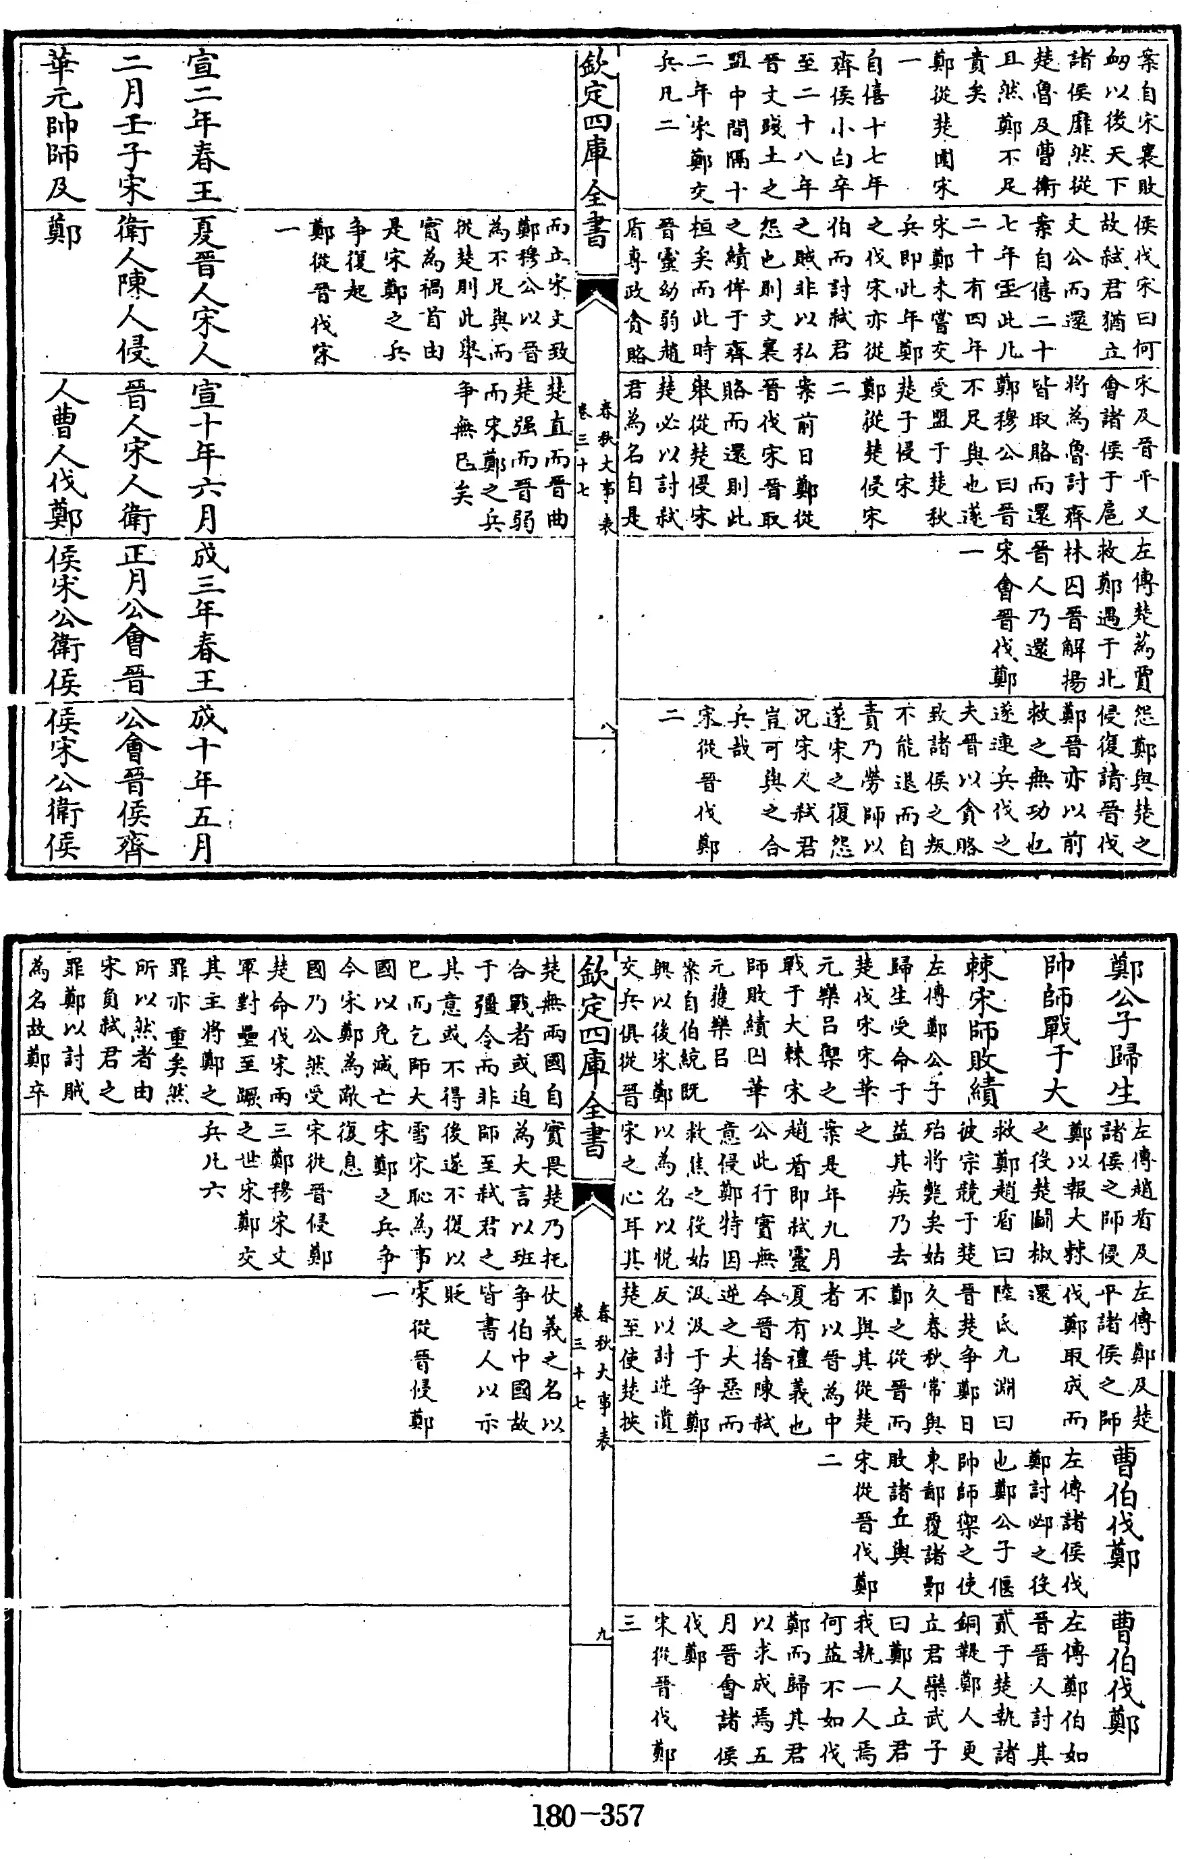 案自宋襄敗
衂以後天下
諸侯靡然從
楚魯及曹衛
且然鄭不足
責矣
鄭從楚圍宋
一
自僖十七年
齊侯小白卒
至二十八年
晉文踐土之
盟中間隔十
二年宋鄭交
兵凡二
侯伐宋曰何
故弒君猶立
文公而還
案自僖二十
七年至此凡
二十有四年
宋鄭未嘗交
兵即此年鄭
之伐宋亦從
伯而討弒君
之賊非以私
怨也則文襄
之績偉于齊
桓矣而此時
晉靈幼弱趙
盾專政貪賂
宋及晉平又
會諸侯于扈
將為魯討齊
皆取賂而還
鄭穆公曰晉
不足與也遂
受盟于楚秋
楚子侵宋
鄭從楚侵宋
二
案前日鄭從
晉伐宋晉取
賂而還則此
舉從楚侵宋
楚必以討弒
君為名自是
左傳楚蒍賈
救鄭遇于北
林囚晉解揚
晉人乃還
宋會晉伐鄭
一
怨鄭與楚之
侵復請晉伐
鄭晉亦以前
救之無功也
遂連兵伐之
夫晉以貪賂
致諸侯之叛
不能退而自
責乃勞師以
遂宋之復怨
況宋人弒君
豈可與之合
兵哉
宋從晉伐鄭
二
欽定四庫全書
春秋大事表
卷三十七
八
而立宋文致
鄭穆公以晉
為不足與而
從楚則此舉
實為禍首由
是宋鄭之兵
争復起
鄭從晉伐宋
一
楚直而晉曲
楚强而晉弱
而宋鄭之兵
争無已矣
宣二年春王
二月壬子宋
華元帥師及
夏晉人宋人
衛人陳人侵
鄭
宣十年六月
晉人宋人衛
人曹人伐鄭
成三年春王
正月公會晉
侯宋公衛侯
成十年五月
公會晉侯齊
侯宋公衛侯
鄭公子歸生
帥師戰于大
棘宋師敗績
左傳鄭公子
歸生受命于
楚伐宋宋華
元樂呂禦之
戰于大棘宋
師敗績囚華
元獲樂呂
案自伯統既
興以後宋鄭
交兵俱從晉
左傳趙盾及
諸侯之師侵
鄭以報大棘
之役楚鬭椒
救鄭趙盾曰
彼宗競于楚
殆將斃矣姑
益其疾乃去
之
案是年九月
趙盾即弒靈
公此行實無
意侵鄭特因
救焦之役姑
以為名以悅
宋之心耳其
左傳鄭及楚
平諸侯之師
伐鄭取成而
還
陸氏九淵曰
晉楚争鄭日
久春秋常與
鄭之從晉而
不與其從楚
者以晉為中
夏有禮義也
今晉捨陳弒
逆之大惡而
汲汲于争鄭
反以討逆遺
楚至使楚挾
曹伯伐鄭
左傳諸侯伐
鄭討邲之役
也鄭公子偃
帥師禦之使
東鄙覆諸鄤
敗諸丘輿
宋從晉伐鄭
二
曹伯伐鄭
左傳鄭伯如
晉晉人討其
貳于楚執諸
銅鞮鄭人更
立君欒武子
曰鄭人立君
我執一人焉
何益不如伐
鄭而歸其君
以求成焉五
月晉會諸侯
伐鄭
宋從晉伐鄭
三
欽定四庫全書
春秋大事表
卷三十七
九
楚無兩國自
合戰者或迫
于彊令而非
其意或不得
已而乞師大
國以免滅亡
今宋鄭為敵
國乃公然受
楚命伐宋兩
軍對壘至蹶
其主將鄭之
罪亦重矣然
所以然者由
宋負弒君之
罪鄭以討賊
為名故鄭卒
實畏楚乃托
為大言以班
師至弒君之
後遂不復以
雪宋恥為事
宋鄭之兵争
復息
宋從晉侵鄭
三鄭穆宋文
之世宋鄭交
兵凡六
仗義之名以
争伯中國故
皆書人以示
貶
宋從晉侵鄭
一
180-357